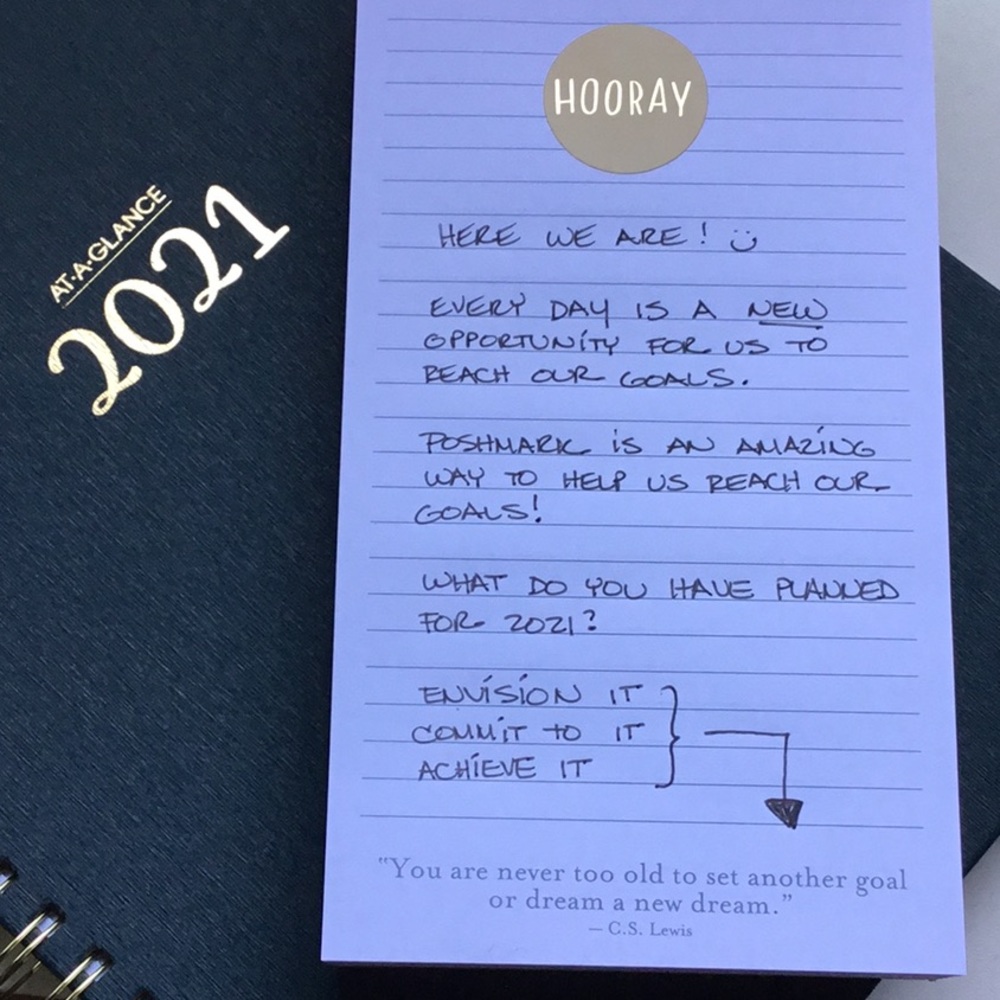 AT-A-GLANCE
2021
HOORAY
HERE WE ARE!
EVERY DAY IS A NEW
OPPORTUNITY FOR US TO
REACH OUR GOALS.
POSHMARK IS AN AMAZING
WAY TO HELP US REACH OUR
GOALS!
WHAT DO YOU HAVE PLANNED
FOR 2021?
ENVISION IT
COMMIT TO IT
ACHIEVE IT
"You are never too old to set another goal
or dream a new dream."
— C.S. Lewis